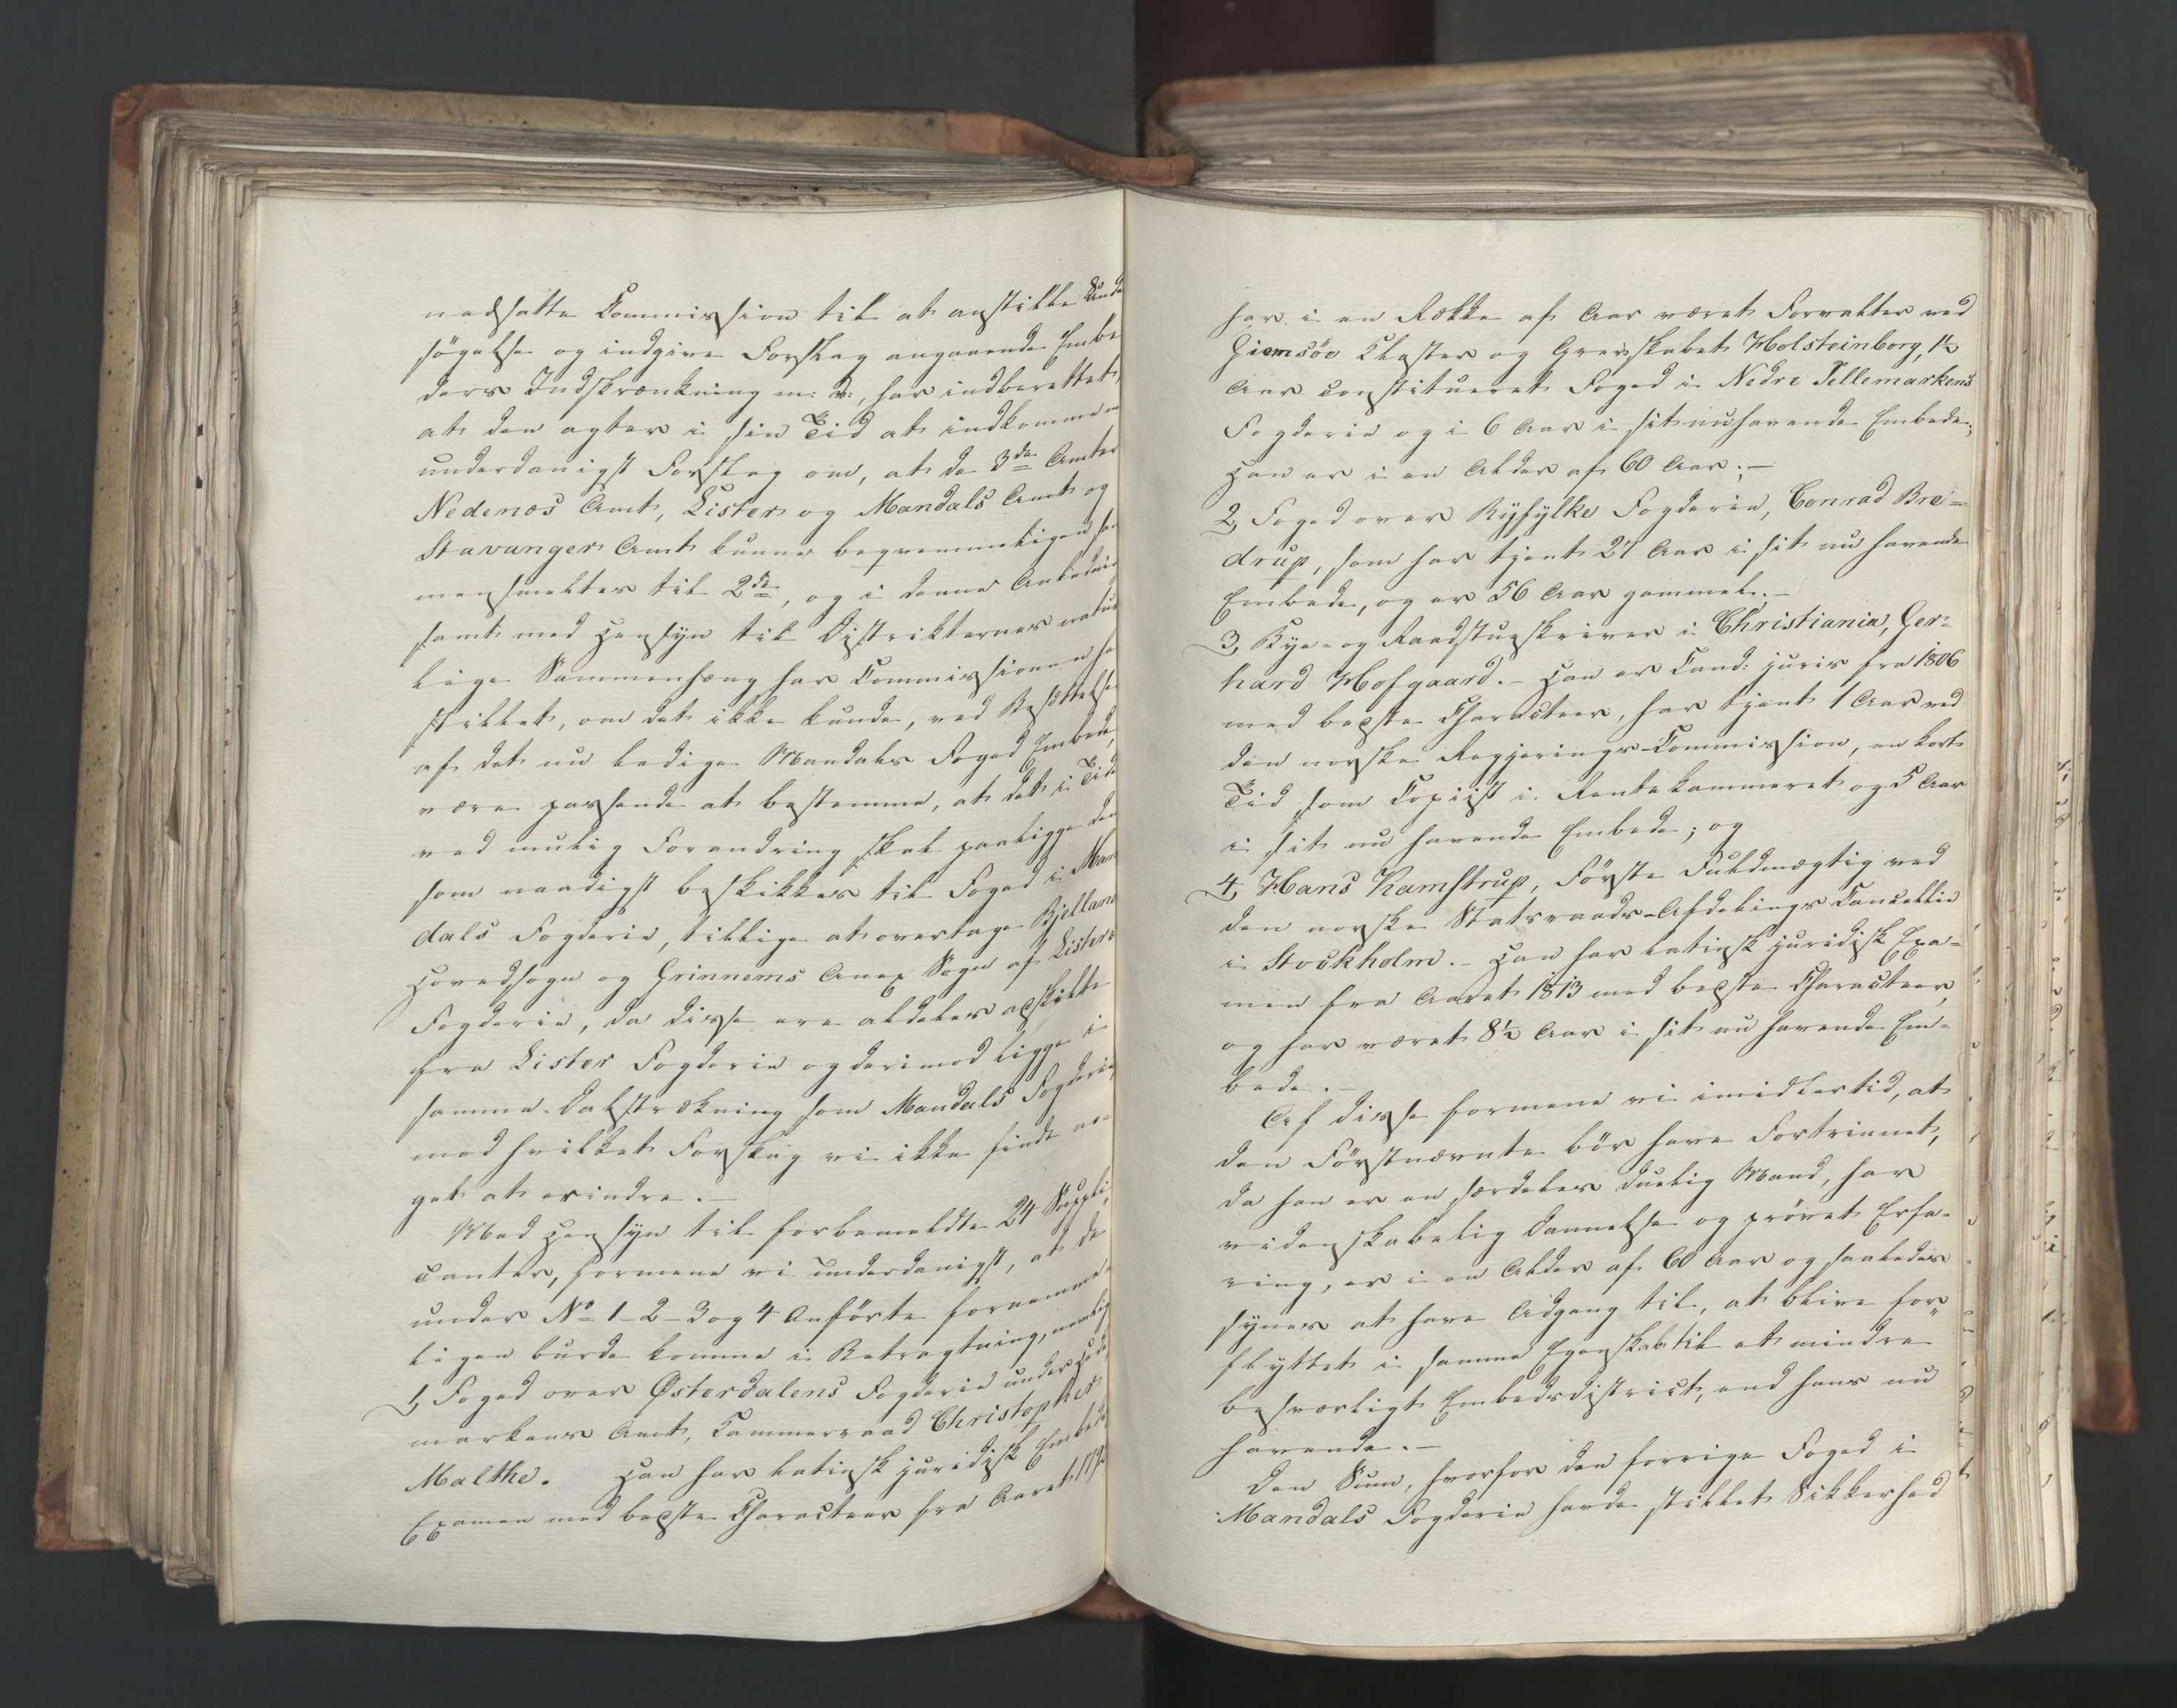 nedsatte Commission til at anstille Unde
søgelse og indgive Forslag angaaende Embe
ders Indskrænkning m: v:, har indberettet,
at den agter i sin Tid at indkomme m
underdanigst Forslag om, at de 3de Amter
Nedenæs Amt, Lister og Mandals Amt og
Stavanger Amt kunne beqvemmeligen sa
mensmeltes til 2de, og i denne Anledni
samt med Hensyn til Distrikternes natur
lige Sammenhæng har Commissionen fo
stillet, om det ikke kunde, ved Besættelsen
af det nu ledige Mandals Foged Embede,
være passende at bestemme, at det i Tid
ved mulig Forandring skal paaligge den
som naadigst beskikkes til Foged i Man
dals Fogderie, tillige at overtage Bjelland
Hovedsogn og Grinnems Anex Sogn af Listers
Fogderie, da disse ere aldeles adskilte
fra Lister Fogderie og derimod ligge i
samme Dalstrækning som Mandals Fogderie,
mod hvilket Forslag vi ikke finde no-
get at erindre.-
Med Hensyn til forbemeldte 24 Suppli-
canter, formene vi underdanigst, at de
under No 1-2-3 og 4 Anførte fornemme-
ligen burde komme i Betragtning, nemlig
1, Foged over Østerdalens Fogderie under Hede
markens Amt, Kammerraad Christopher
Malthe. Han har latinsk juridisk Embeds
Examen med bedste Characteer fra Aaret 179
har i en Række af Aar været Forvalter ved
Giemsøe Kloster og Grevskabet Holsteinborg, 1½
Aar constitueret Foged i Nedre Tellemarkens
Fogderie og i 6 Aar i sit nuhavende Embede;
Han er i en Alder af 60 Aar;-
2, Foged over Ryfylke Fogderie, Conrad Bre=
drup, som har tjent 27 Aar i sit nu havende
Embede, og er 56 Aar gammel.-
3, Bye- og Raadstueskriver i Christiania, Ger=
hard Hofgaard.- Han er Cand: juris fra 1806
med bedste Characteer, har tjent 1 Aar ved
den norske Regjerings-Commission, en kort
Tid som Copiist i Rentekammeret og 5 Aar
i sit nu havende Embede; og
4, Hans Kamstrup, Første Fuldmægtig ved
den norske Statsraads-Afdelings Cancellie
i Stockholm.- Han har latinsk juridisk Exa-
men fra Aaret 1813 med bedste Characteer,
og har været 8½ Aar i sit nu havende Em-
bede.-
Af disse formene vi imidlertid, at
den Førstnævnte bør have Fortrinnet,
da han er en særdeles duelig Mand, har
videnskabelig Dannelse og prøvet Erfa-
ring, er i en Alder af 60 Aar og saaledes
synes at have Adgang til, at blive for-
flyttet i samme Egenskab til et mindre
besværligt Embedsdistrict, end hans nu
havende.-
Den Sum, hvorfor den forrige Foged i
Mandals Fogderie havde stillet Sikkerhed